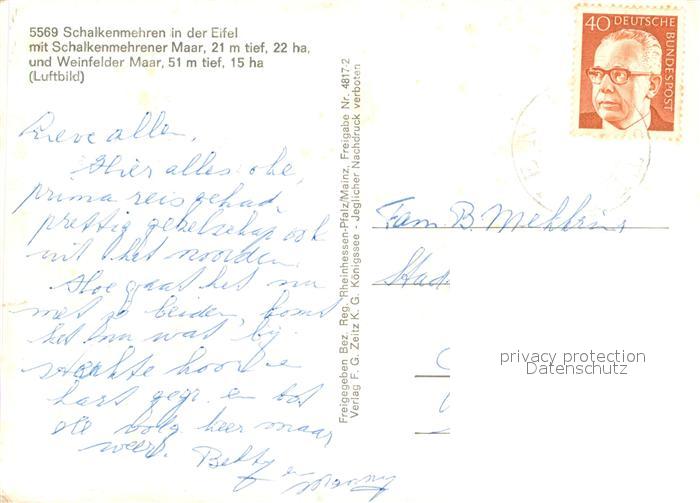 5569 Schalkenmehren in der Eifel
mit Schalkenmehrener Maar, 21 m tief, 22 ha,
und Weinfelder Maar, 51 m tief, 15 ha
(Luftbild)
Lieve allen,
Hier alles oke,
prima reis gehad,
prettig gezelschap ook
uit het noorden.
Hoe gaat het nu
met je beiden, komt
het nu wat bij
sterkte hoor
hart. gegr. en tot
de volg keer maar
weer. Betty en
Freigegeben Bez. Reg. Rheinhessen-Pfalz/Mainz, Freigabe Nr. 4817-2
Verlag F. G. Zeitz K. G. Königssee - Jeglicher Nachdruck verboten
40 DEUTSCHE
BUNDESPOST
Fam. B.
Stad
privacy protection
Datenschutz